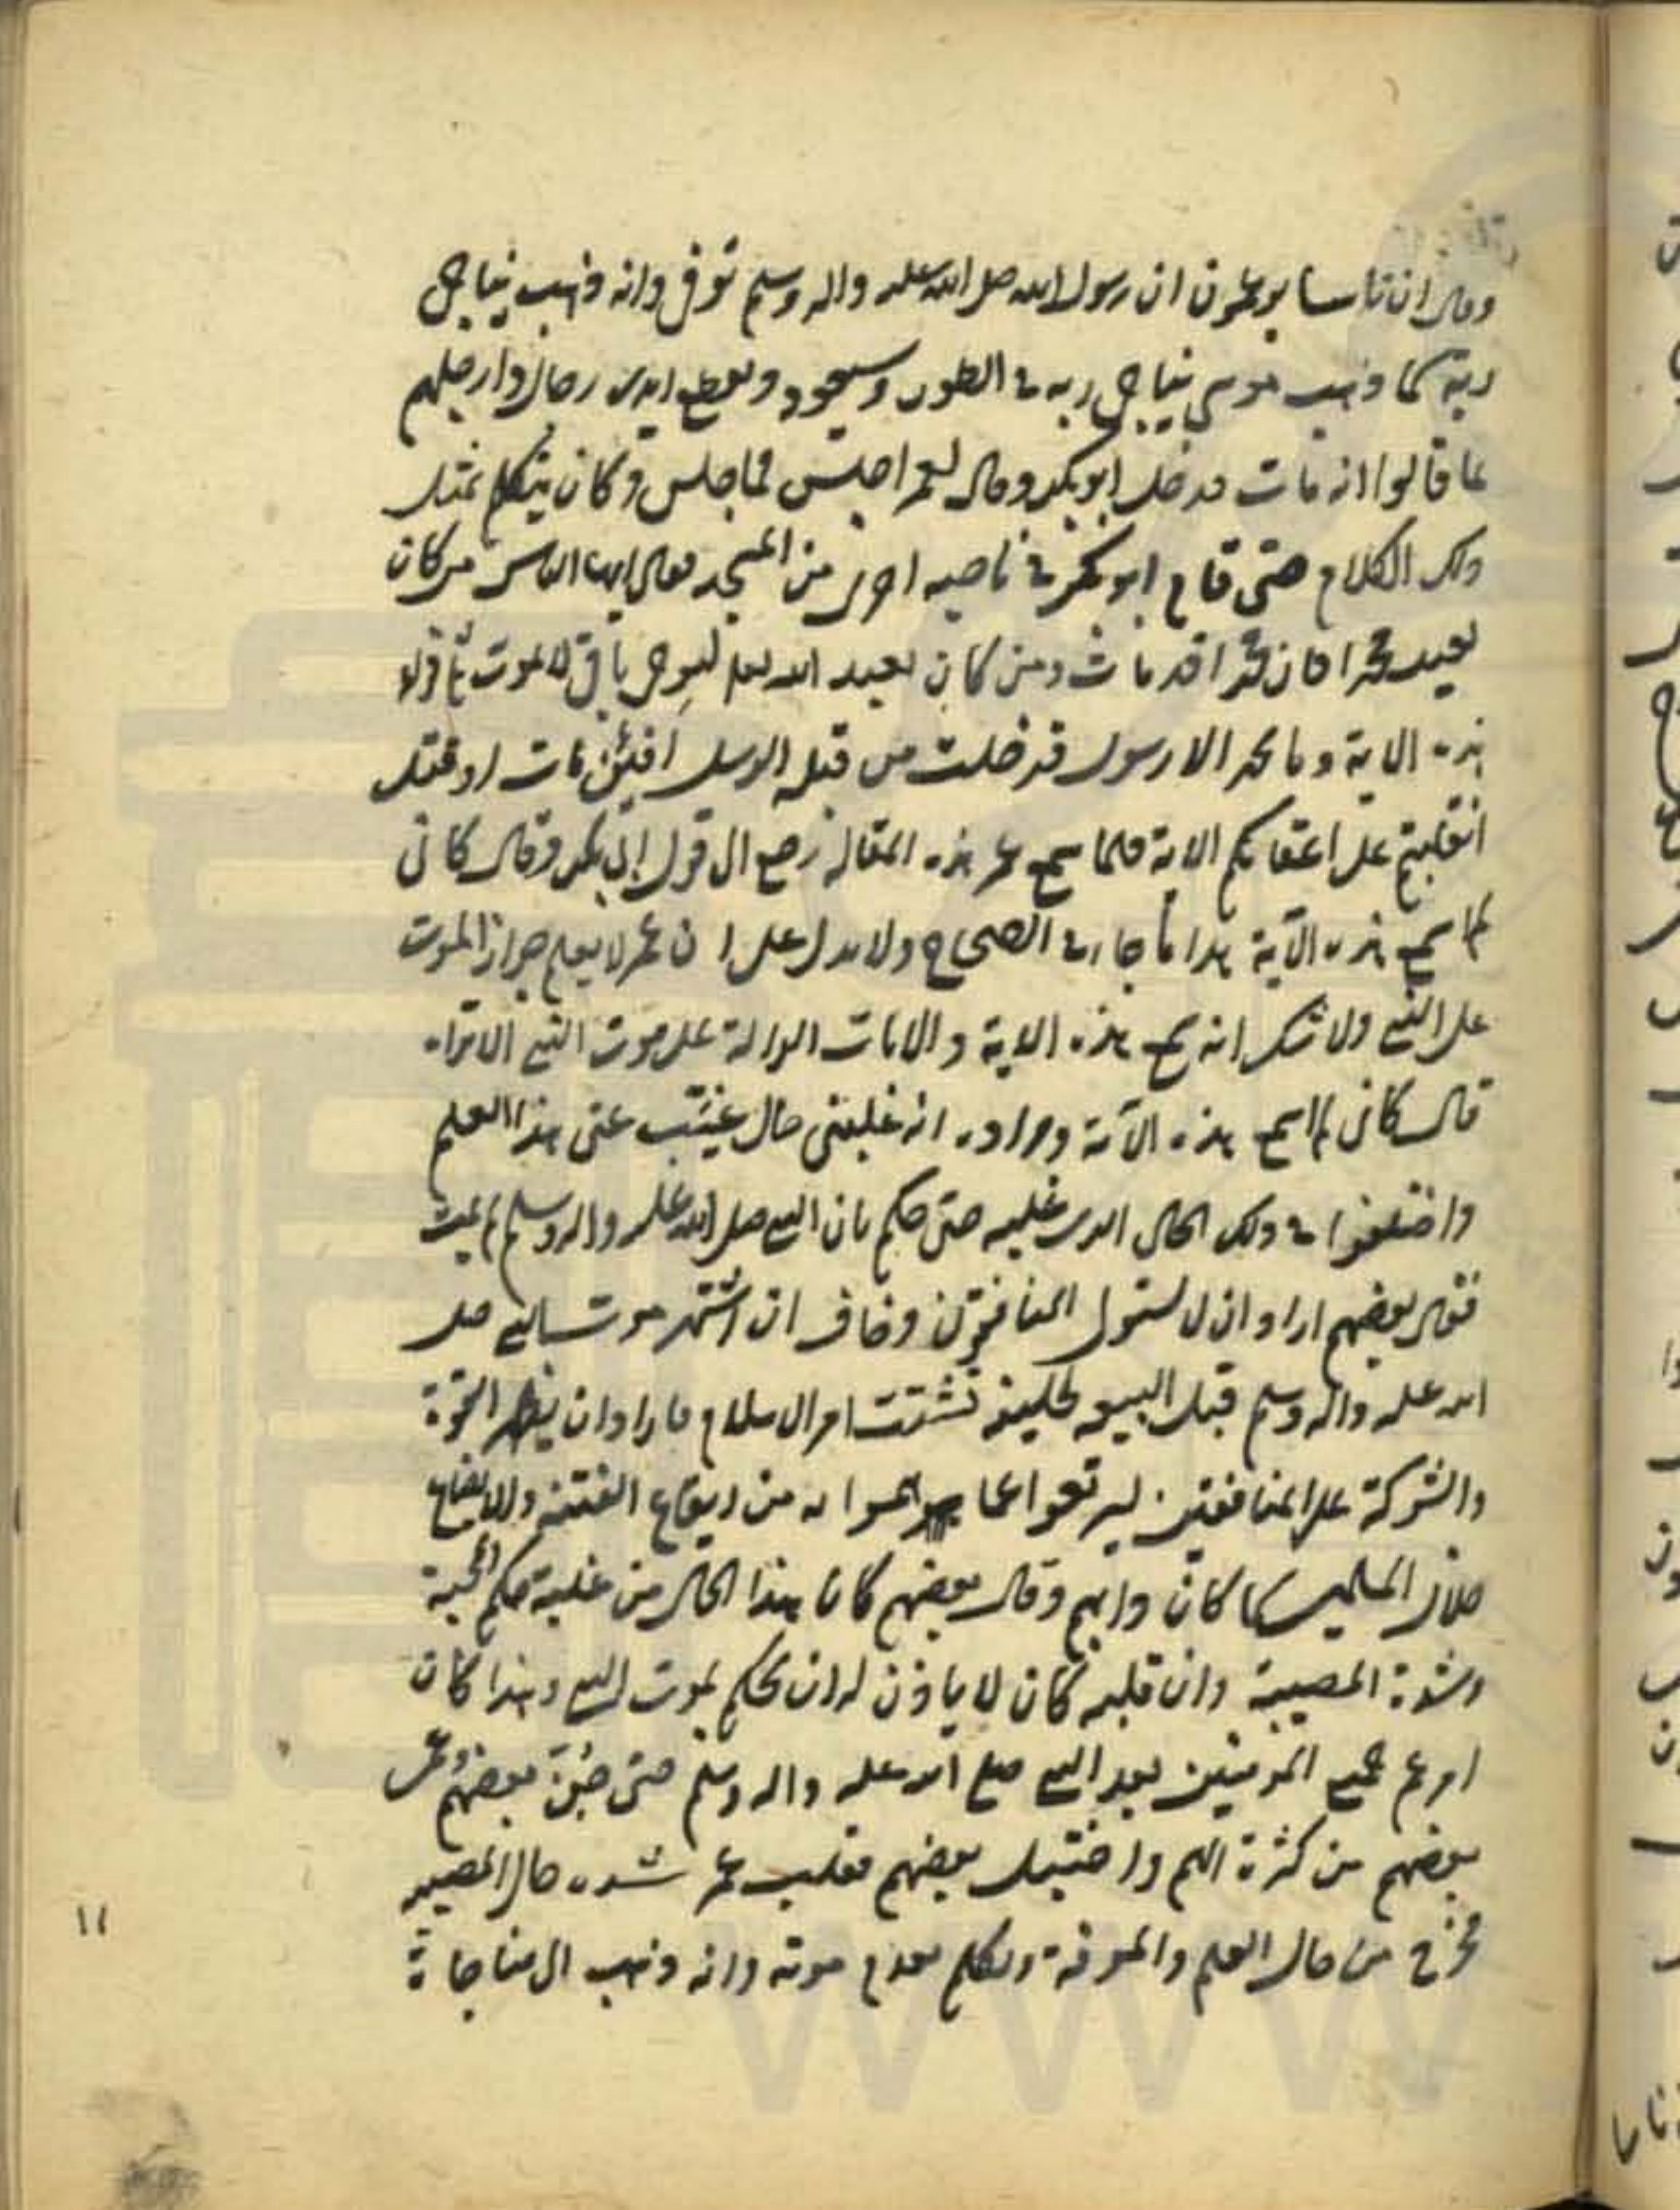 وقال ان ناسا يزعمون ان رسول الله صلى الله عليه واله وسلم توفى وانه ذهب يناجى
ربه كما ذهب موسى يناجى ربه فى الطور وسيعود ويقطع ايدى رجال وارجلهم
بما قالوا انه مات فدخل ابوبكر وقال لعمر اجلس فما جلس وكان يتكلم بمثل
ذلك الكلام حتى قام ابوبكر فى ناحيه اخرى من المسجد فقال ايها الناس من كان
يعبد محمدا فان محمدا قد مات ومن كان يعبد الله فهو حى باق لا يموت ثم قرأ
هذه الاية وما محمد الا رسول قد خلت من قبله الرسل افئن مات او قتل
انقلبتم على اعقابكم الاية فلما سمع عمر هذه المقالة رجع الى قول ابى بكر وقال كانى
لم اسمع هذه الآية هذا ما جاء فى الصحاح ولا يدل على ان عمر لا يعلم جواز الموت
على النبى ولا شك انه سمع هذه الاية والايات الدالة على موت النبى الا تراه
قال كانى لم اسمع هذه الآية ومراده انه غلبنى حال غيّب عنى هذا العلم
واختلفوا فى ذلك الحال الذى غلبه حتى حكم بان النبى صلى الله عليه واله وسلم لم يمت
فقال بعضهم اراد ان لا يستولى المنافقون وخاف ان اشتهر موت النبى صلى
الله عليه واله وسلم قبل البيعه لخليفة تشتت امر الاسلام فاراد ان يظهر القوة
والشوكة على المنافقين ليرتدعوا عما هموا به من ايقاع الفتنة والايضاع
خلال المسلمين كما كان دابهم وقال بعضهم كان هذا الحال من غلبة حكم المحبة
وشدة المصيبة وان قلبه كان لا ياذن له ان يحكم بموت النبى وهذا كان
امر عم جميع المؤمنين بعد النبى صلى الله عليه واله وسلم حتى جنّ بعضهم و
بعضهم من كثرة الهم واختبل بعضهم فغلب عمر شده حال المصيبة
فخرج من حال العلم والمعرفة وتكلم بعدم موته وانه ذهب الى مناجاة
١١